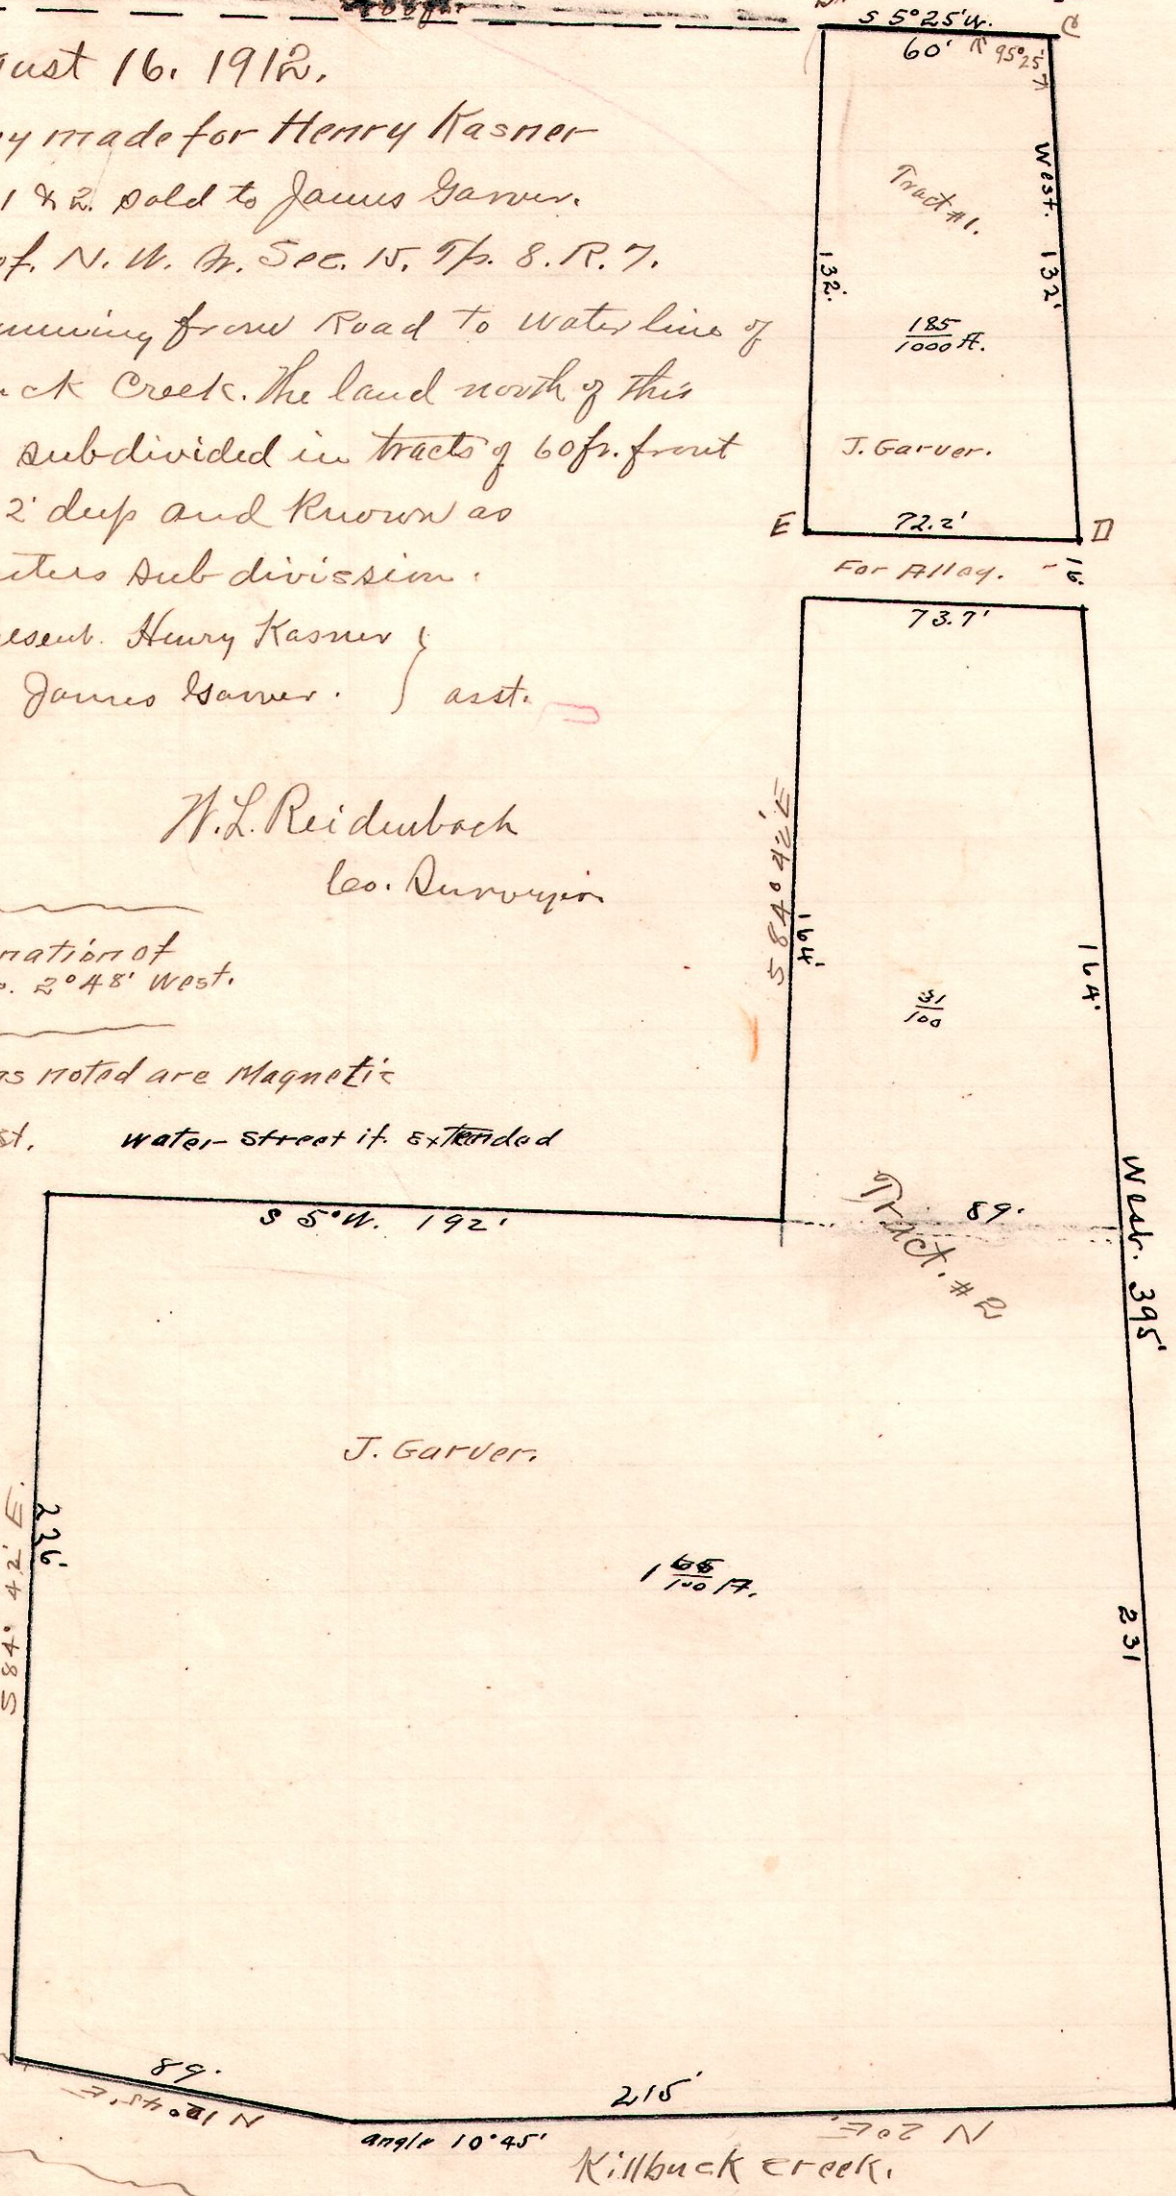 S 5°25'W. C
60' 95°25'
ust 16. 1912.
y made for Henry Kasner
1 & 2. sold to James Garver.
of. N. W. Qr. Sec. 15. Tp. 8. R. 7.
unning from Road to water line of
ck Creek. The land north of this
subdivided in tracts of 60 ft. front
2' deep and known as
sub division.
esent. Henry Kasner
James Garver. } asst.
W. L. Reidenbach
Co. Surveyor.
nation of
2°48' West.
ns noted are Magnetic
st. Water Street if Extended
Tract #1.
West. 132'
132'
185/1000 A.
J. Garver.
E 72.2' D
For Alley. 16'
73.7'
S 84°42'E
164'
164'
31/100
Tract. #2
89'
West. 395'
S 5°W. 192'
J. Garver.
S 84° 42' E.
226'
1 A.
231
89'
N 12°45' E
215'
N 2°E.
angle 10°45'
Killbuck Creek.